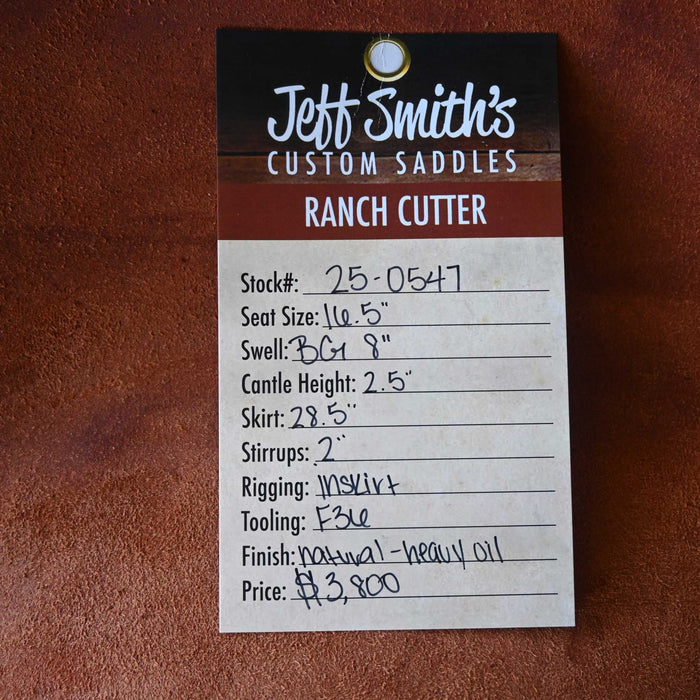 Jeff Smith's
CUSTOM SADDLES
RANCH CUTTER
Stock#: 25-0547
Seat Size: 16.5"
Swell: BG 8"
Cantle Height: 2.5"
Skirt: 28.5"
Stirrups: 2"
Rigging: Inskirt
Tooling: F36
Finish: natural-heavy oil
Price: $3,800